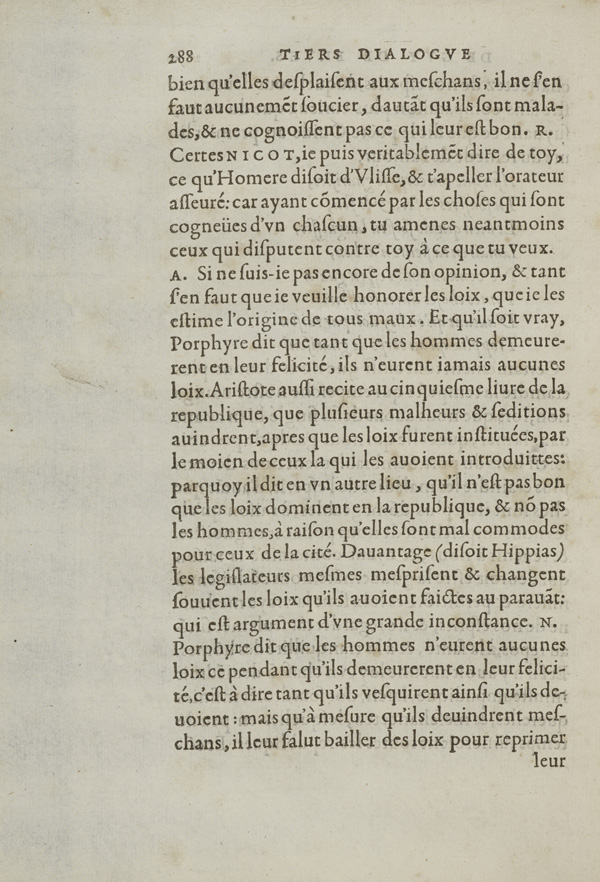 288 TIERS DIALOGVE
bien qu'elles desplaisent aux meschans, il ne s'en
faut aucunemēt soucier, dautāt qu'ils sont mala-
des, & ne cognoissent pas ce qui leur est bon. R.
Certes NICOT, ie puis veritablemēt dire de toy,
ce qu'Homere disoit d'Vlisse, & t'apeller l'orateur
asseuré: car ayant cōmencé par les choses qui sont
cogneües d'vn chascun, tu amenes neantmoins
ceux qui disputent contre toy à ce que tu veux.
A. Si ne suis-ie pas encore de son opinion, & tant
s'en faut que ie veuille honorer les loix, que ie les
estime l'origine de tous maux. Et qu'il soit vray,
Porphyre dit que tant que les hommes demeure-
rent en leur felicité, ils n'eurent iamais aucunes
loix. Aristote aussi recite au cinquiesme liure de la
republique, que plusieurs malheurs & seditions
auindrent, apres que les loix furent instituées, par
le moien de ceux la qui les auoient introduittes:
parquoy il dit en vn autre lieu, qu'il n'est pas bon
que les loix dominent en la republique, & nō pas
les hommes, à raison qu'elles sont mal commodes
pour ceux de la cité. Dauantage (disoit Hippias)
les legislateurs mesmes mesprisent & changent
souuent les loix qu'ils auoient faictes au parauāt:
qui est argument d'vne grande inconstance. N.
Porphyre dit que les hommes n'eurent aucunes
loix ce pendant qu'ils demeurerent en leur felici-
té, c'est à dire tant qu'ils vesquirent ainsi qu'ils de-
uoient: mais qu'à mesure qu'ils deuindrent mes-
chans, il leur falut bailler des loix pour reprimer
leur